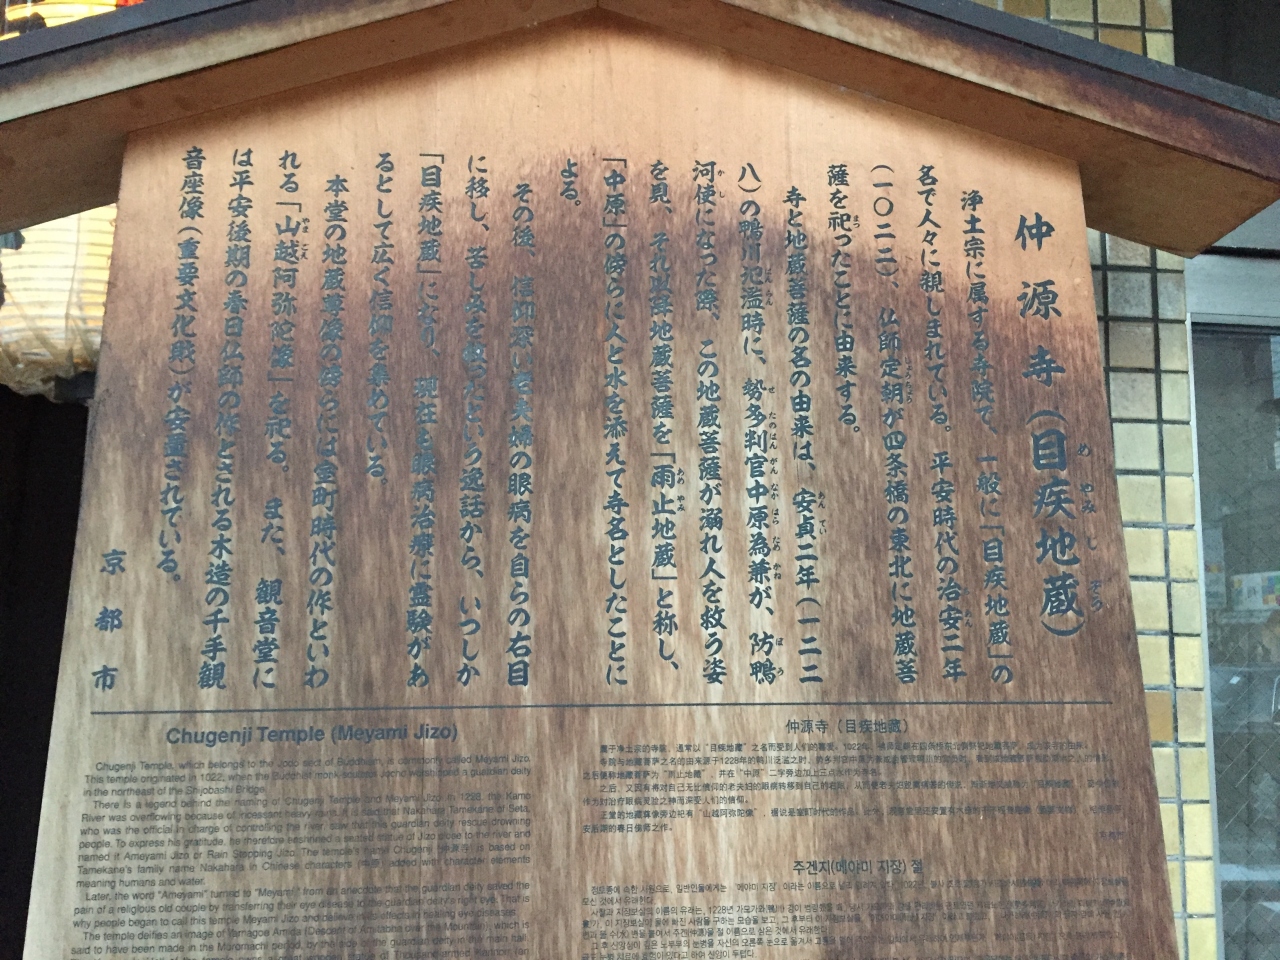 仲源寺(目疾地蔵)
浄土宗に属する寺院で、一般に「目疾地蔵」の
名で人々に親しまれている。平安時代の治安二年
(一〇二二)、仏師定朝が四条橋の東北に地蔵菩
薩を祀ったことに由来する。
寺と地蔵菩薩の名の由来は、安貞二年(一二二
八)の鴨川氾濫時に、勢多判官中原為兼が、防鴨
河使になった際、この地蔵菩薩が溺れ人を救う姿
を見、それ以降地蔵菩薩を「雨止地蔵」と称し、
「中原」の傍らに人と水を添えて寺名としたことに
よる。
その後、信仰深い老夫婦の眼病を自らの右目
に移し、苦しみを救ったという逸話から、いつしか
「目疾地蔵」になり、現在も眼病治療に霊験があ
るとして広く信仰を集めている。
本堂の地蔵尊像の傍らには室町時代の作といわ
れる「山越阿弥陀像」を祀る。また、観音堂に
は平安後期の春日仏師の作とされる木造の千手観
音座像(重要文化財)が安置されている。
京都市
Chugenji Temple (Meyami Jizo)
Chugenji Temple, which belongs to the Jodo sect of Buddhism, is commonly called Meyami Jizo.
This temple originated in 1022, when the Buddhist monk-sculptor Jocho worshipped a guardian deity
in the northeast of the Shijobashi Bridge.
There is a legend behind the naming of Chugenji Temple and Meyami Jizo. In 1228, the Kamo
River was overflowing because of incessant heavy rains. It is said that Nakahara Tamekane of Seta,
who was the official in charge of controlling the river, saw that this guardian deity rescue drowning
people. To express his gratitude, he therefore enshrined a seated statue of Jizo close to the river and
named it Ameyami Jizo or Rain Stopping Jizo. The temple's name Chugenji (仲源寺) is based on
Tamekane's family name Nakahara in Chinese characters (中原) added with character elements
meaning humans and water.
Later, the word "Ameyami" turned to "Meyami" from an anecdote that the guardian deity saved the
pain of a religious old couple by transferring their eye disease to the guardian deity's right eye. That is
why people began to call this temple Meyami Jizo and believe in its effects in healing eye diseases.
The temple deifies an image of Yamagoe Amida (Descent of Amitabha over the Mountain), which is
said to have been made in the Muromachi period, by the side of the guardian deity in the main hall.
仲源寺（目疾地藏）
属于净土宗的寺院，通常以"目疾地藏"之名而受到人们的喜爱。1022年，
寺院与地藏菩萨之名的由来源于1228年的鸭川泛滥之时，
之后便称地藏菩萨为"雨止地藏"，并在"中原"二字旁边加上三点水作为寺名。
作为对治疗眼病灵验之神而深受人们的信仰。
正堂的地藏尊像旁边祀有"山越阿弥陀像"，据说是室町时代的作品。
安后期的春日佛师之作。
주겐지(메야미 지장) 절
정토종에 속한 사원으로, 일반인들에게는 '메야미 지장'이라는 이름으로
모신 것에서 유래한다.